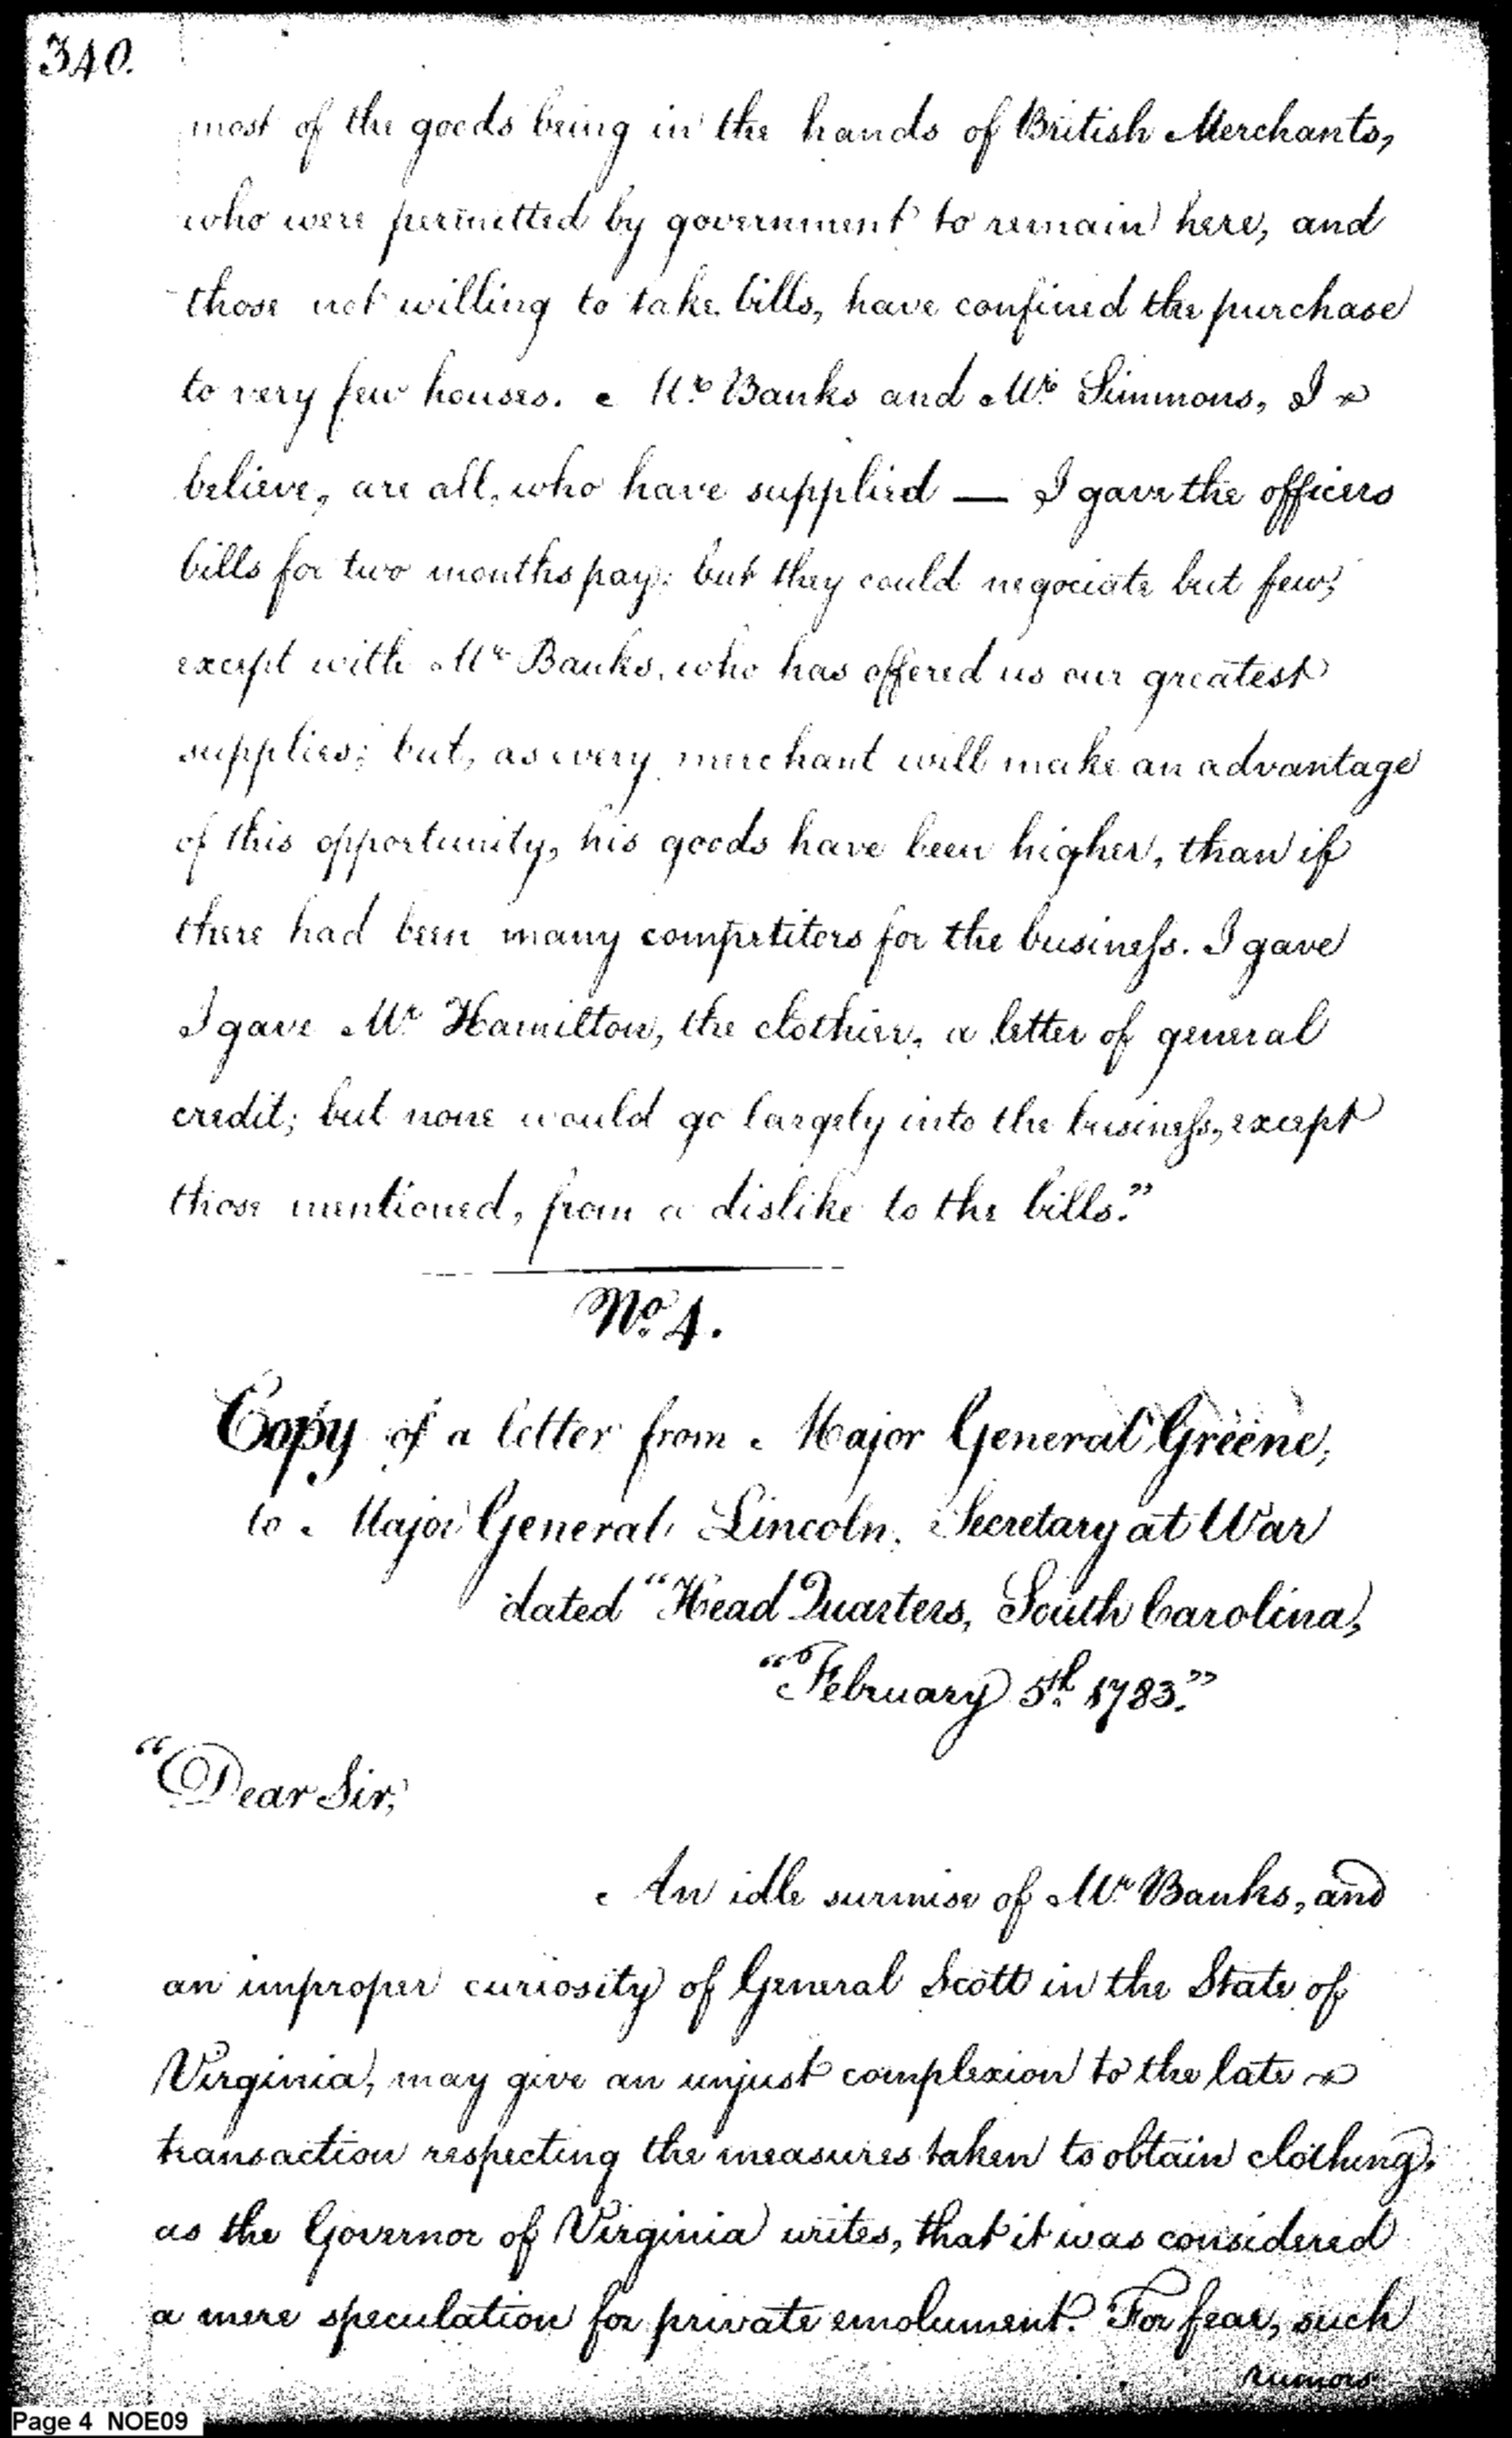 340.
most of the goods being in the hands of British Merchants,
who were permitted by government to remain here, and
those not willing to take bills, have confined the purchase
to very few houses. Mr. Banks and Mr. Simmons, I
believe, are all, who have supplied — I gave the officers
bills for two months pay: but they could negociate but few,
except with Mr Banks, who has offered us our greatest
supplies; but, as every merchant will make an advantage
of this opportunity, his goods have been higher, than if
there had been many competitors for the business. I gave
I gave Mr. Hamilton, the clothier, a letter of general
credit; but none would go largely into the business, except
those mentioned, from a dislike to the bills."
No. 4.
Copy of a letter from Major General Greene,
to Major General Lincoln, Secretary at War
dated "Head Quarters, South Carolina,
"February 5th. 1783."
"Dear Sir,
An idle surmise of Mr Banks, and
an improper curiosity of General Scott in the State of
Virginia, may give an unjust complexion to the late
transaction respecting the measures taken to obtain clothing,
as the Governor of Virginia writes, that it was considered
a mere speculation for private emolument. For fear, such
rumors
Page 4 NOE09